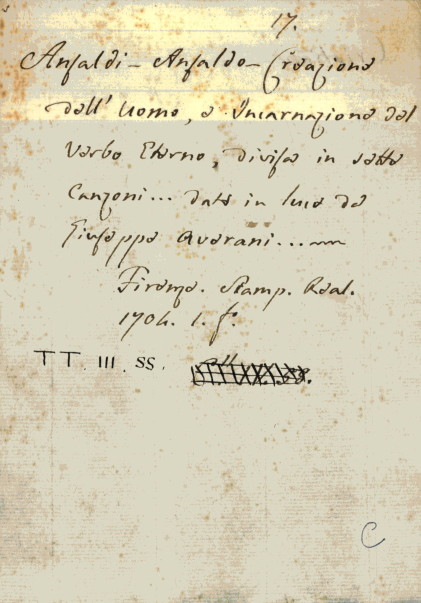 17.
Ansaldi - Ansaldo - Creazione
dell' Uomo, e Incarnazione del
Verbo Eterno, divisa in sette
Canzoni... data in luce da
Giuseppe Averani...
Firenze. Stamp. Real.
1704. 1. f.
TT. III. SS.
C